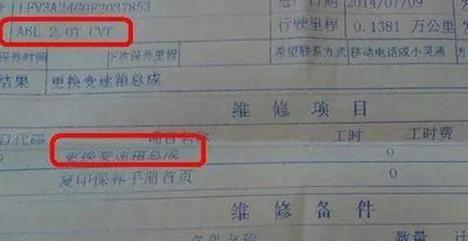 LFV3A24GGB3037853 进厂日期 2014/07/09
A6L 2.0T CVT 行驶里程 0.1381 万公里
保养时间 下次保养里程 希望联系方式 移动电话或小灵通
结果 更换变速箱总成
维修项目
目代码 项目名称 工时 工时费
更换变速箱总成 0
复印保养手册首页 0
维修备件
备件名称 数量